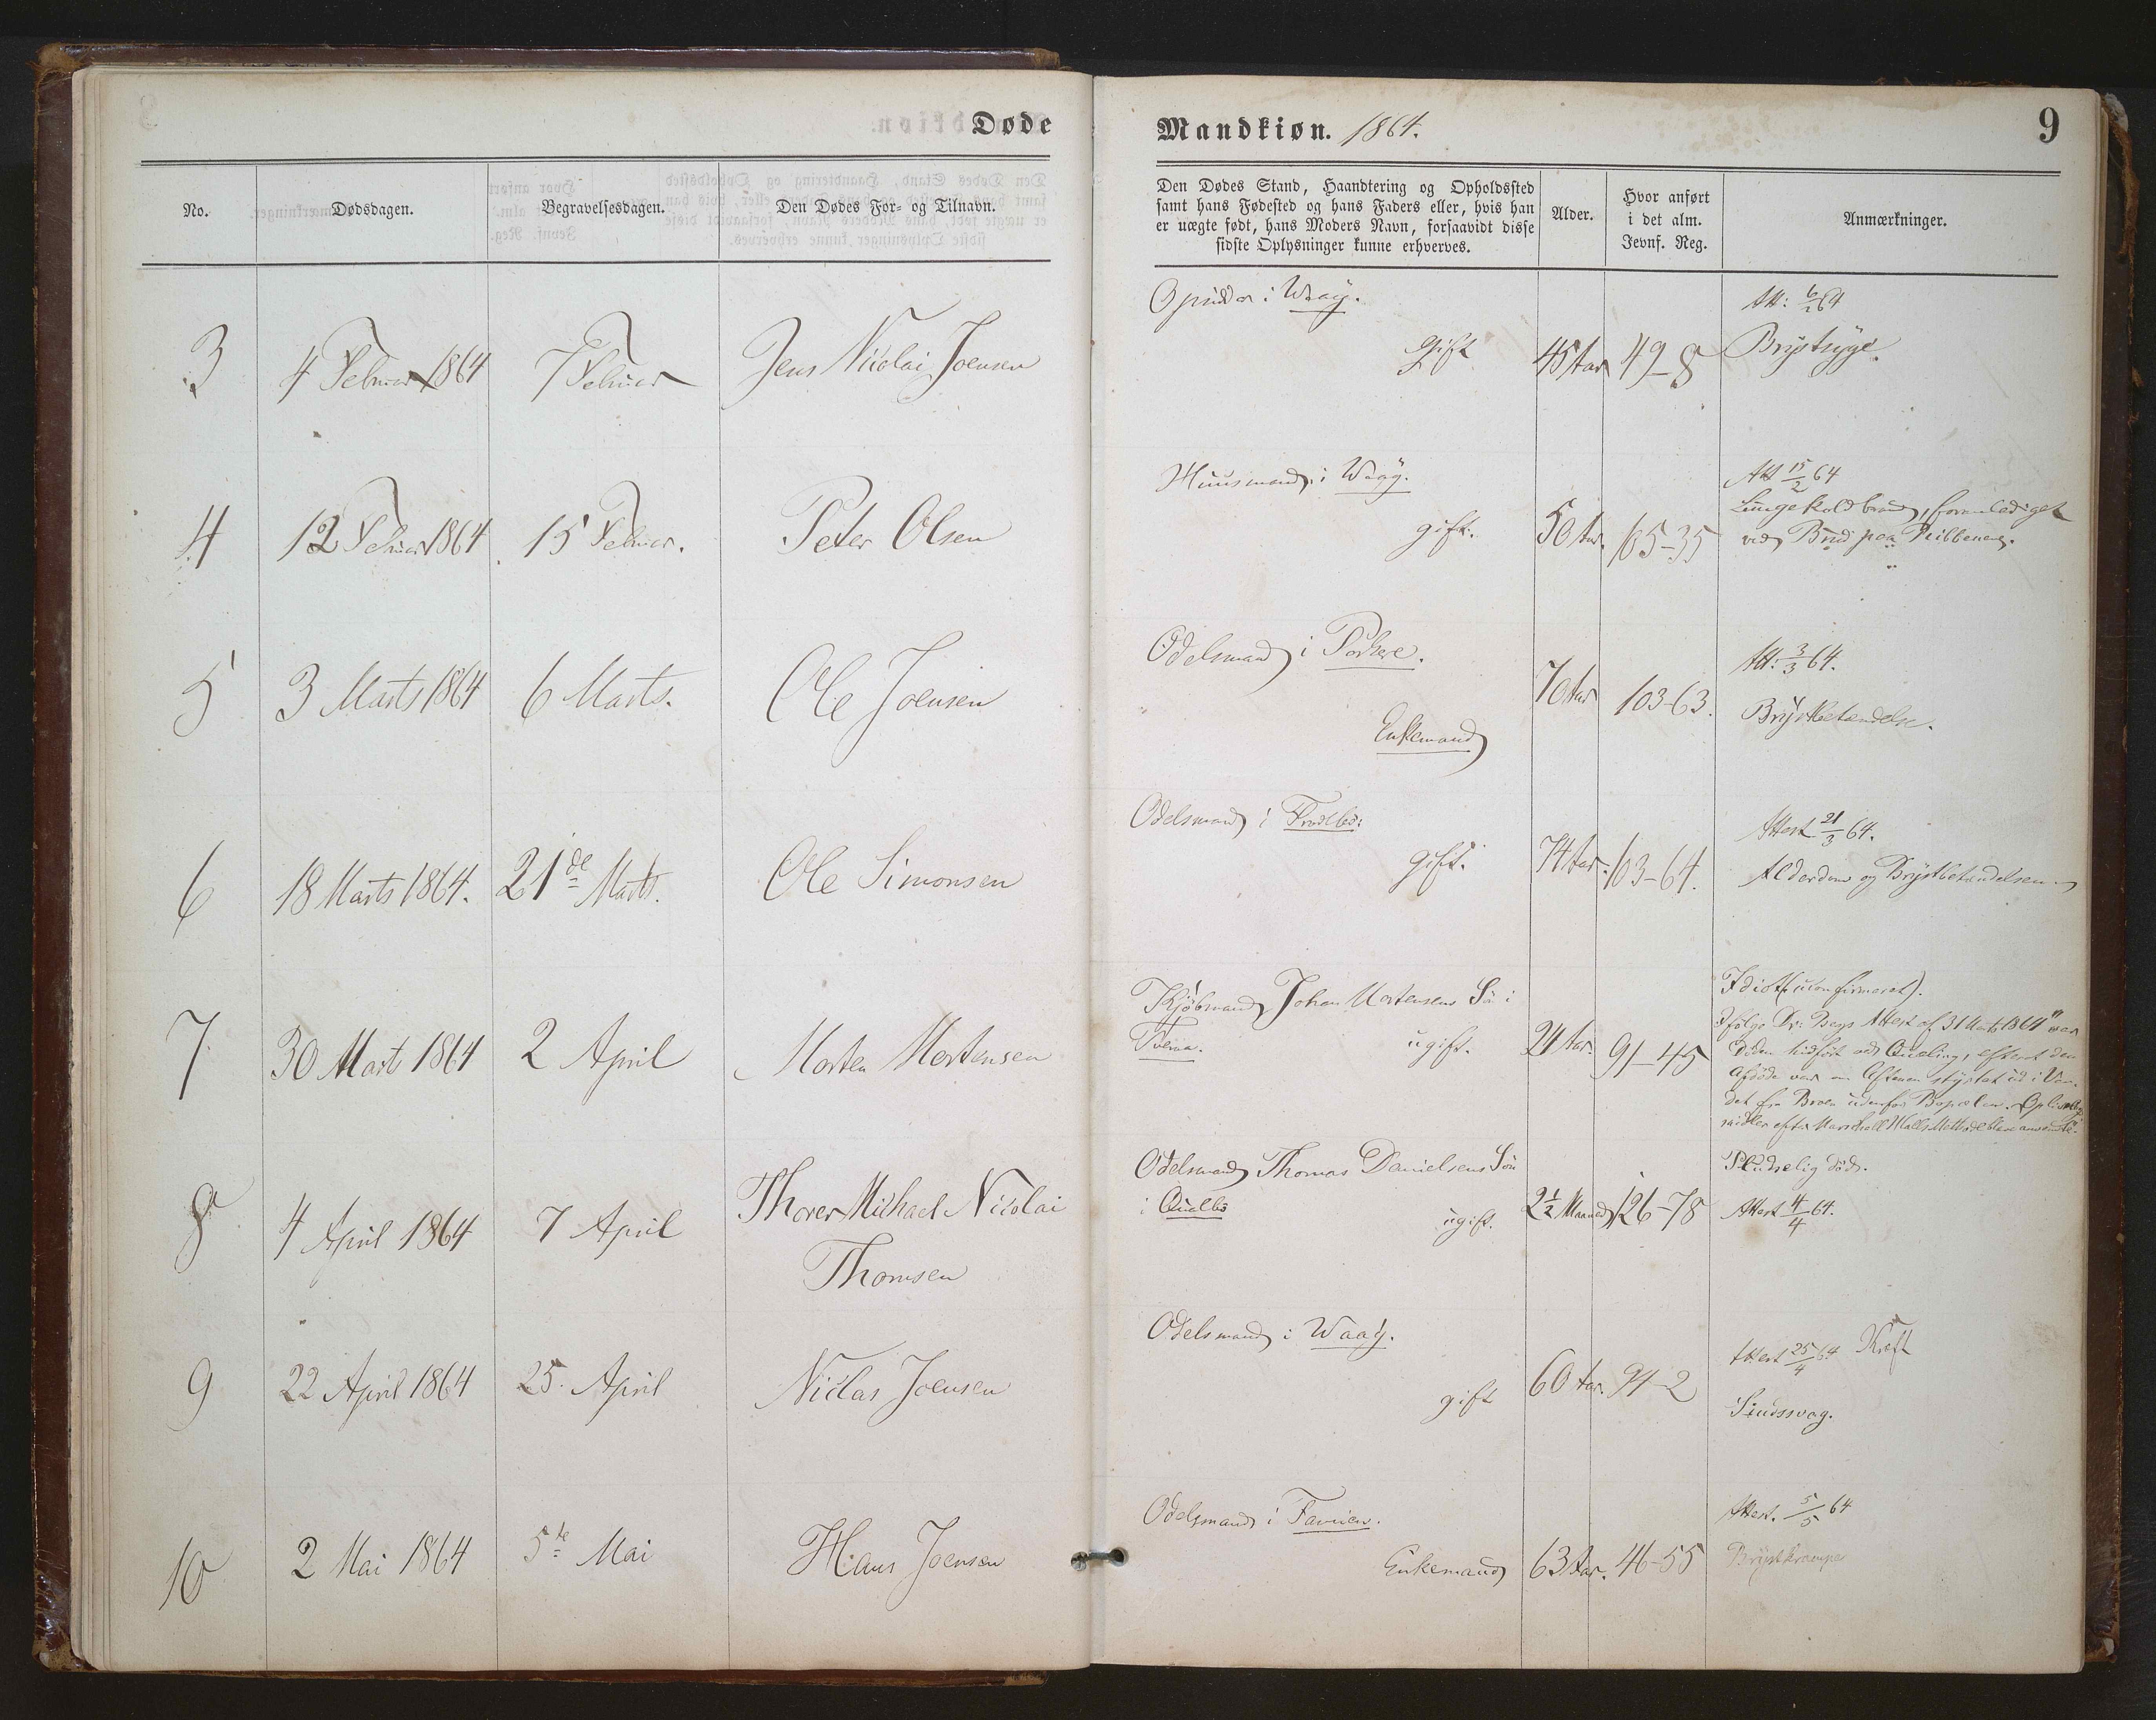 Døde
Mandkiøn. 1864.
9
No.
Dødsdagen.
Begravelsesdagen.
Den Dødes For- og Tilnavn.
Den Dødes Stand, Haandtering og Opholdssted
samt hans Fødested og hans Faders eller, hvis han
er uægte født, hans Moders Navn, forsaavidt disse
sidste Oplysninger kunne erhverves.
Alder.
Hvor anført
i det alm.
Jevnf. Reg.
Anmærkninger.
3
4 Februar 1864
7 Februar
Jens Nicolai Joensen
i Waag.
gift
45 Aar
49-8
Att: 6/2 64
Brystsyge.
4
12 Februar 1864
15 Februar.
Peter Olsen
Huusmand i Waag.
gift.
50 Aar.
65-35
Att 15/2 64
Lungekoldbrand, foranlediget
ved Brud paa Ribbenene.
5
3 Marts 1864
6 Marts.
Ole Joensen
Odelsmand i Porkere.
Enkemand
70 Aar
103-63.
Att: 3/3 64.
Brystbetændelse.
6
18 Marts 1864.
21de Marts.
Ole Simonsen
Odelsmand i
gift.
74 Aar.
103-64.
Attest 21/3 64.
Alderdom og Brystbetændelse
7
30 Marts 1864
2 April
Morten Mortensen
Kjøbmand Johan Mortensens Søn i
Tveraa.
ugift.
24 Aar.
91-45
Idiot (uconfirmeret).
Ifølge Dr: Attest af 31 Marts 1864 var
Døden ved Qvæling, efterat den
afdøde var om Aftenen styrtet ud i Van-
det fra Broen udenfor Bopælen.
midler efter Marschall Halls Methode bleve anvendte.
8
4 April 1864
7 April
Thorer Michael Nicolai
Thomsen
Odelsmand Thomas Danielsens Søn
i Qualbø
ugift.
2 1/2 Maaned
126-78
Pludselig død.
Attest 4/4 64.
9
22 April 1864
25. April
Niclas Joensen
Odelsmand i Waag.
gift
60 Aar.
94-2
Attest 25/4 64 Kræft
Sindssvag.
10
2 Mai 1864
5te Mai
Hans Joensen
Odelsmand i Famien.
Enkemand
63 Aar.
46-55
Attest. 5/5 64
Brystkrampe